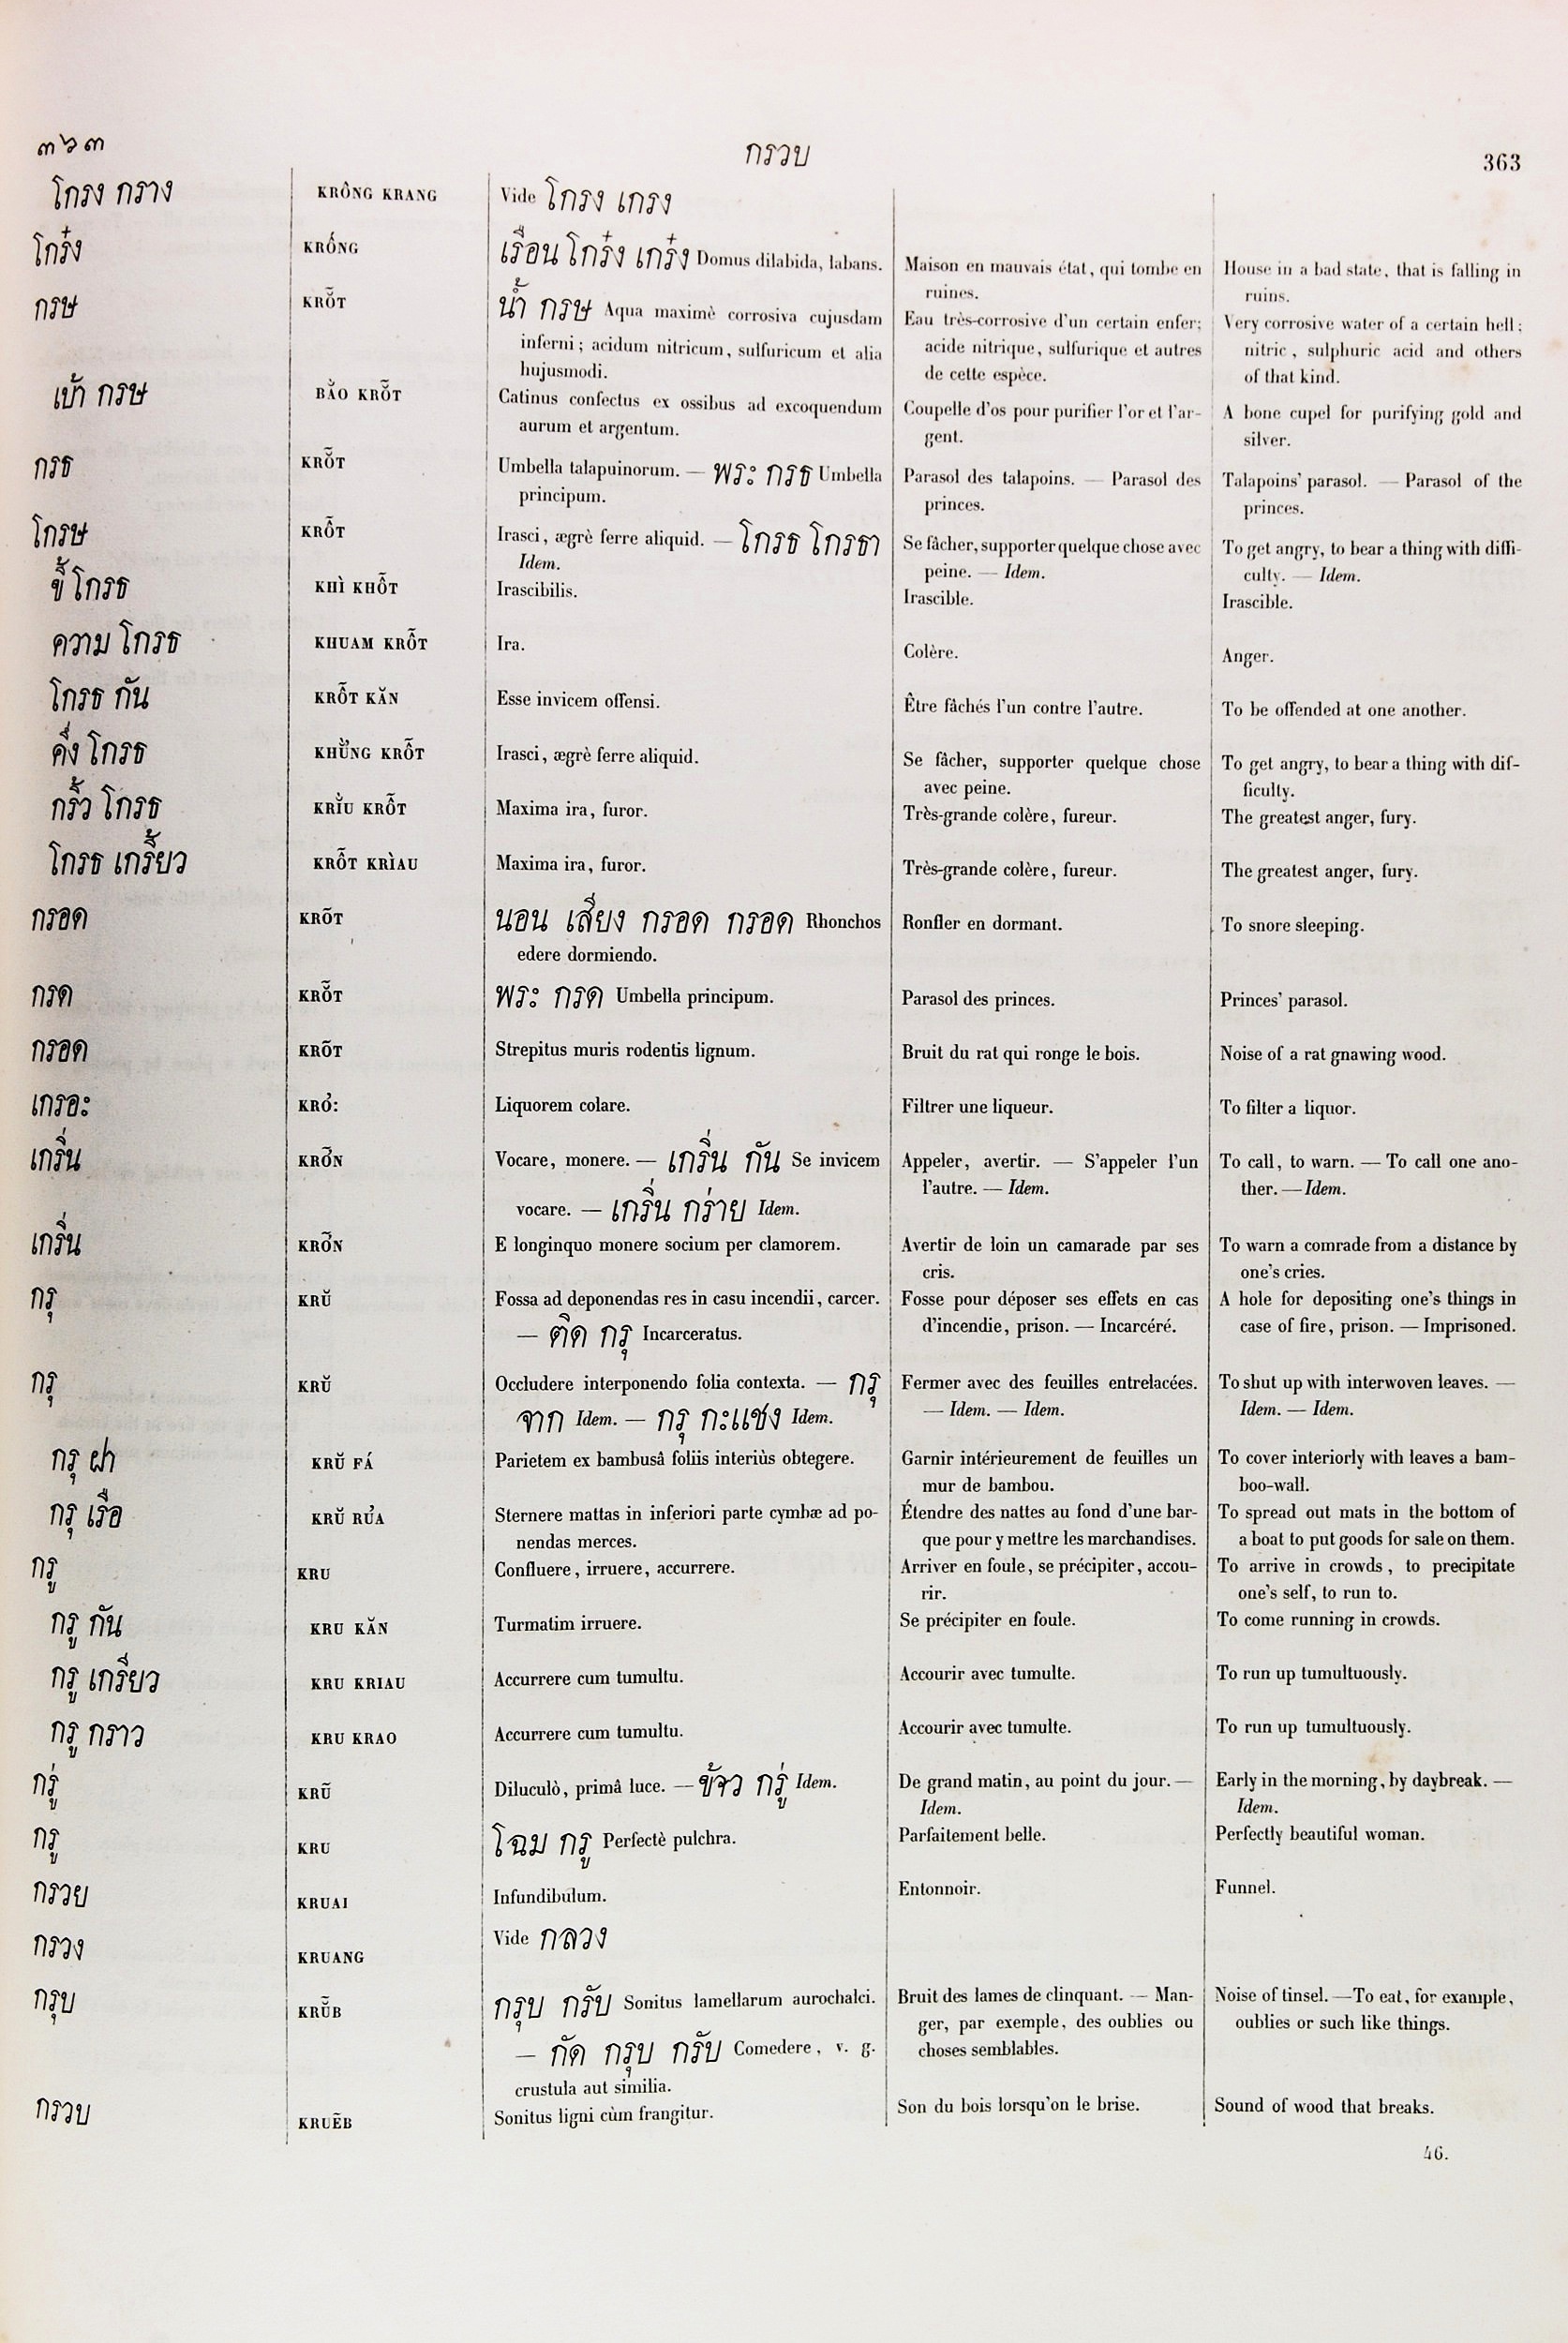 ๓๖๓ กรวบ 363
โกรง กราง KRÔNG KRANG Vide โกรง เกรง
โกร๋ง KRỐNG เรือน โกร๋ง เกร๋ง Domus dilabida, labans. Maison en mauvais état, qui tombe en House in a bad state, that is falling in
ruines. ruins.
กรษ KRO᷃T น้ำ กรษ Aqua maximè corrosiva cujusdam Eau très-corrosive d'un certain enfer; Very corrosive water of a certain hell;
inferni; acidum nitricum, sulfuricum et alia acide nitrique, sulfurique et autres nitric, sulphuric acid and others
hujusmodi. de cette espèce. of that kind.
เบ้า กรษ BẢO KRỖT Catinus confectus ex ossibus ad excoquendum Coupelle d'os pour purifier l'or et l'ar- A bone cupel for purifying gold and
aurum et argentum. gent. silver.
กรธ KRỖT Umbella talapuinorum. — พระ กรธ Umbella Parasol des talapoins. — Parasol des Talapoins' parasol. — Parasol of the
principum. princes. princes.
โกรษ KRỖT Irasci, ægrè ferre aliquid. — โกรธ โกรธา Se fâcher, supporter quelque chose avec To get angry, to bear a thing with diffi-
Idem. peine. — Idem. culty. — Idem.
ขี้ โกรธ KHÌ KHỖT Irascibilis. Irascible. Irascible.
ความ โกรธ KHUAM KRỖT Ira. Colère. Anger.
โกรธ กัน KRỖT KĂN Esse invicem offensi. Être fâchés l'un contre l'autre. To be offended at one another.
คึ่ง โกรธ KHỬNG KRỖT Irasci, ægrè ferre aliquid. Se fâcher, supporter quelque chose To get angry, to bear a thing with dif-
avec peine. ficulty.
กริ้ว โกรธ KRỈU KRỖT Maxima ira, furor. Très-grande colère, fureur. The greatest anger, fury.
โกรธ เกรี้ยว KRỖT KRÌAU Maxima ira, furor. Très-grande colère, fureur. The greatest anger, fury.
กรอด KRÕT นอน เสียง กรอด กรอด Rhonchos Ronfler en dormant. To snore sleeping.
edere dormiendo.
กรด KRỖT พระ กรด Umbella principum. Parasol des princes. Princes' parasol.
กรอด KRÕT Strepitus muris rodentis lignum. Bruit du rat qui ronge le bois. Noise of a rat gnawing wood.
เกรอะ KRỞ: Liquorem colare. Filtrer une liqueur. To filter a liquor.
เกริ่น KRỠN Vocare, monere. — เกริ่น กัน Se invicem Appeler, avertir. — S'appeler l'un To call, to warn. — To call one ano-
vocare. — เกริ่น กร่าย Idem. l'autre. — Idem. ther. — Idem.
เกริ่น KRỠN E longinquo monere socium per clamorem. Avertir de loin un camarade par ses To warn a comrade from a distance by
cris. one's cries.
กรุ KRŬ Fossa ad deponendas res in casu incendii, carcer. Fosse pour déposer ses effets en cas A hole for depositing one's things in
— ติด กรุ Incarceratus. d'incendie, prison. — Incarcéré. case of fire, prison. — Imprisoned.
กรุ KRŬ Occludere interponendo folia contexta. — กรุ Fermer avec des feuilles entrelacées. To shut up with interwoven leaves. —
จาก Idem. — กรุ กะแชง Idem. — Idem. — Idem. Idem. — Idem.
กรุ ฝา KRŬ FÁ Parietem ex bambusâ foliis interiùs obtegere. Garnir intérieurement de feuilles un To cover interiorly with leaves a bam-
mur de bambou. boo-wall.
กรุ เรือ KRŬ RỦA Sternere mattas in inferiori parte cymbæ ad po- Étendre des nattes au fond d'une bar- To spread out mats in the bottom of
nendas merces. que pour y mettre les marchandises. a boat to put goods for sale on them.
กรู KRU Confluere, irruere, accurrere. Arriver en foule, se précipiter, accou- To arrive in crowds, to precipitate
rir. one's self, to run to.
กรู กัน KRU KĂN Turmatim irruere. Se précipiter en foule. To come running in crowds.
กรู เกรียว KRU KRIAU Accurrere cum tumultu. Accourir avec tumulte. To run up tumultuously.
กรู กราว KRU KRAO Accurrere cum tumultu. Accourir avec tumulte. To run up tumultuously.
กรู่ KRŨ Diluculò, primâ luce. — ข้าว กรู่ Idem. De grand matin, au point du jour. — Early in the morning, by daybreak. —
Idem. Idem.
กรู KRU โฉม กรู Perfectè pulchra. Parfaitement belle. Perfectly beautiful woman.
กรวย KRUAI Infundibulum. Entonnoir. Funnel.
กรวง KRUANG Vide กลวง
กรุบ KRŬ̃B กรุบ กรับ Sonitus lamellarum aurochalci. Bruit des lames de clinquant. — Man- Noise of tinsel. — To eat, for example,
— กัด กรุบ กรับ Comedere, v. g. ger, par exemple, des oublies ou oublies or such like things.
crustula aut similia. choses semblables.
กรวบ KRUẼB Sonitus ligni cùm frangitur. Son du bois lorsqu'on le brise. Sound of wood that breaks.
46.